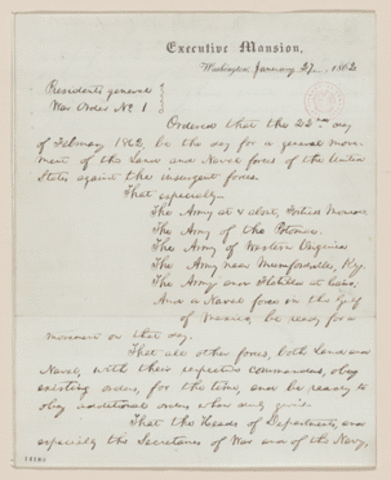 Executive Mansion,
Washington, January 27, 1862
Presidents general
War Order No. 1
Ordered that the 22nd day
of February 1862, be the day for a general move-
ment of the Land and Naval forces of the United
States against the insurgent forces.
That especially—
The Army at & about, Fortress Monroe
The Army of the Potomac.
The Army of Western Virginia
The Army near Munfordsville, Ky.
The Army and Flotilla at Cairo.
And a Naval force in the Gulf
of Mexico, be ready for a
movement on that day.
That all other forces, both Land and
Naval, with their respective commanders, obey
existing orders, for the time, and be ready to
obey additional orders when duly given.
That the Heads of Departments, and
especially the Secretaries of War and of the Navy,